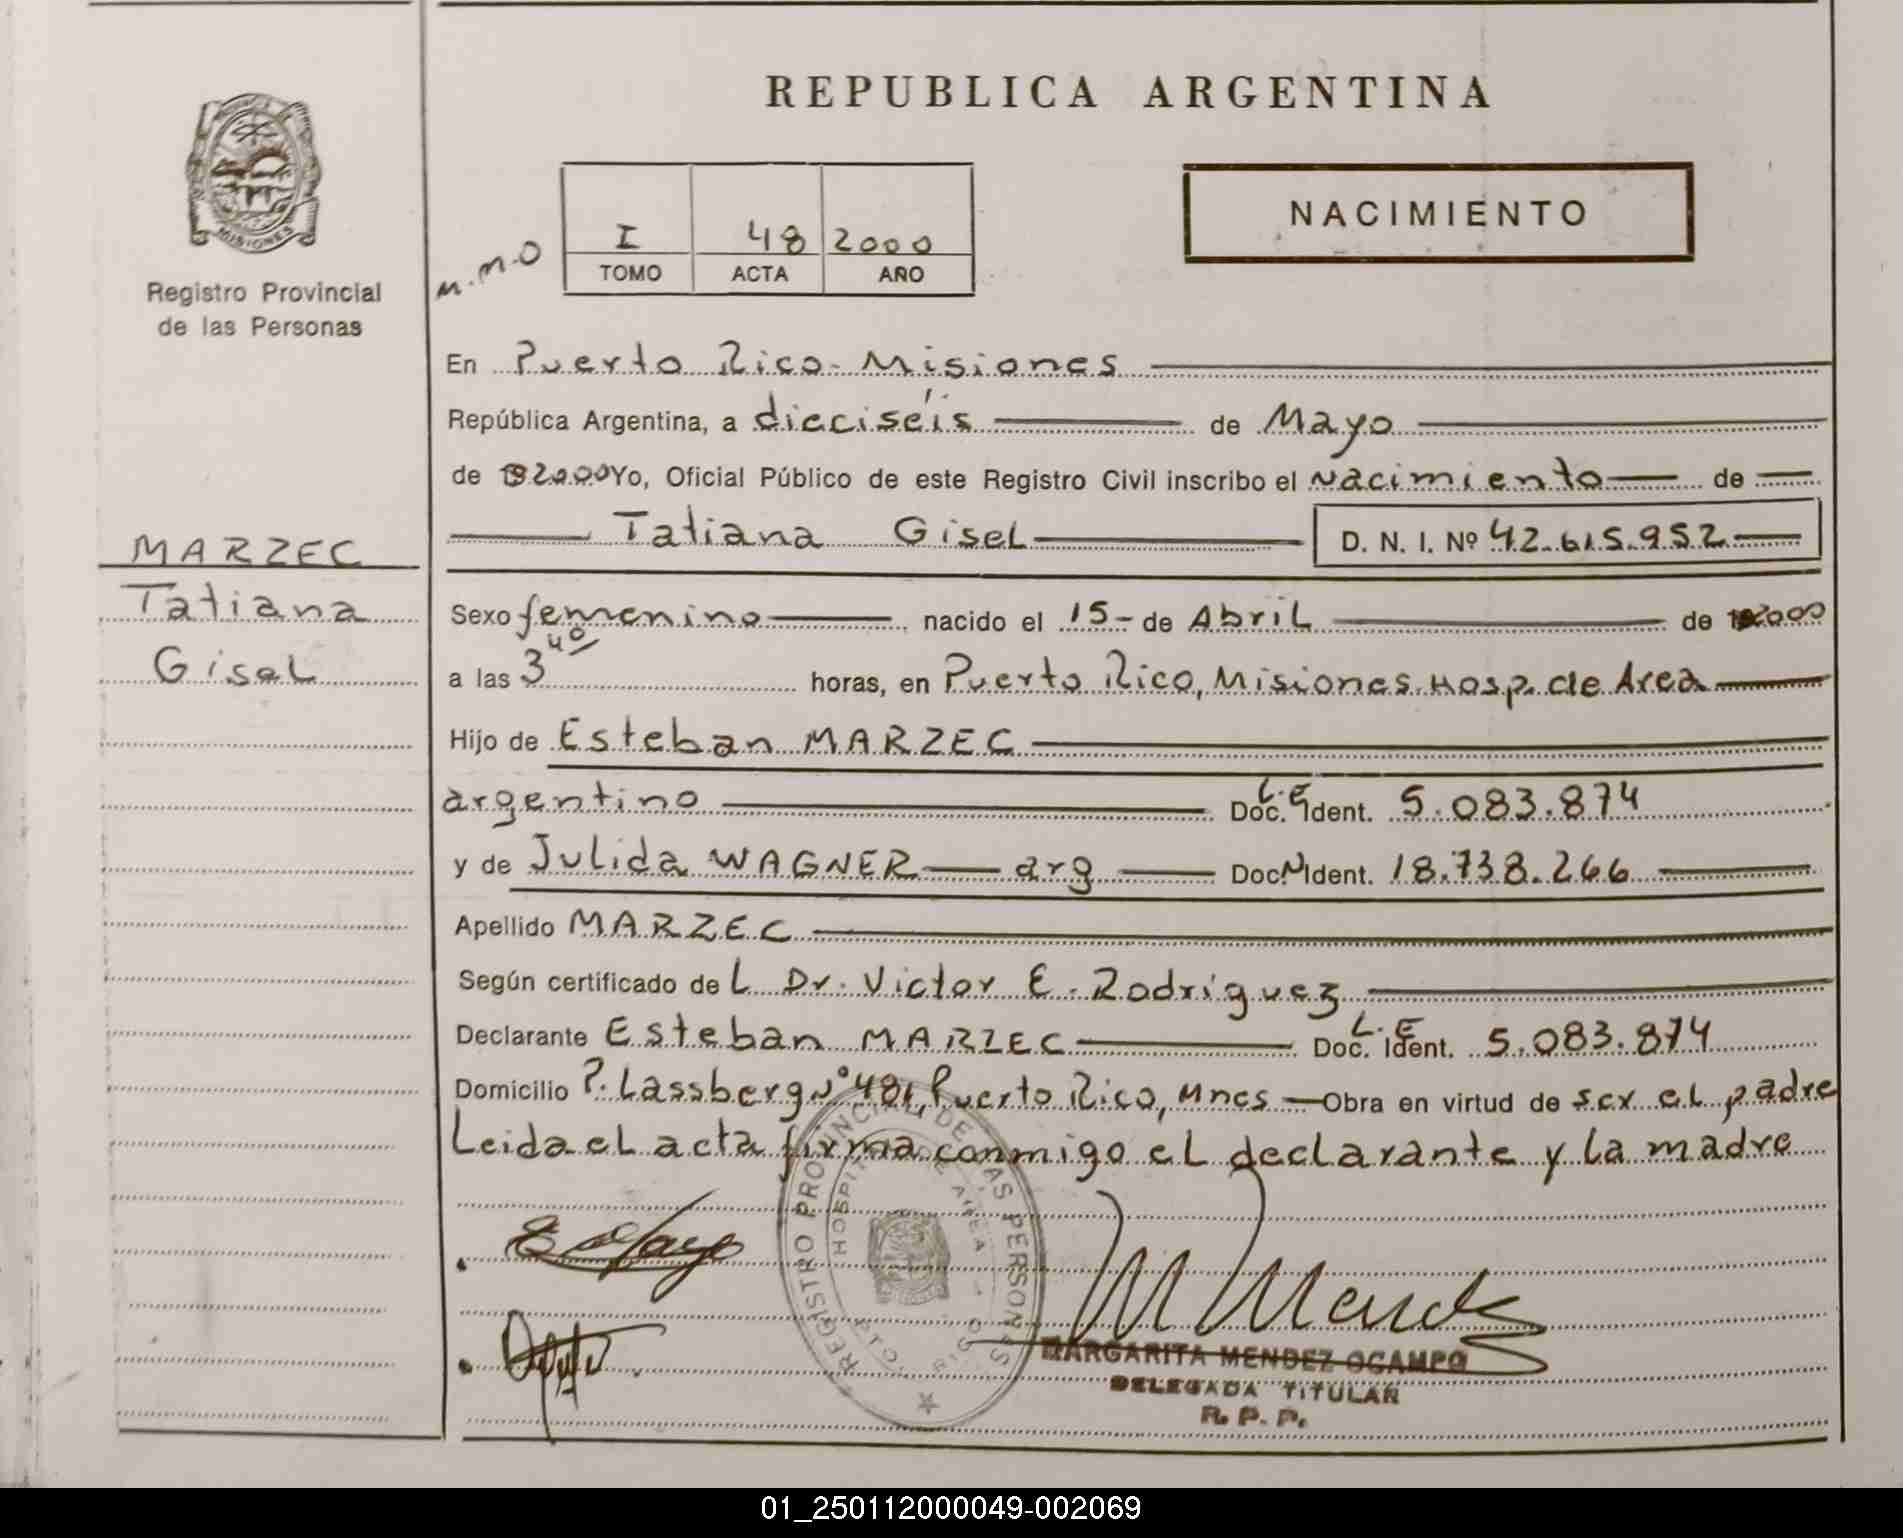 REPUBLICA ARGENTINA
MISIONES
Registro Provincial
de las Personas
M.M.O
I 48 2000
TOMO ACTA AÑO
NACIMIENTO
MARZEC
Tatiana
Gisel
En Puerto Rico - Misiones
República Argentina, a dieciséis de Mayo
de 2000 Yo, Oficial Público de este Registro Civil inscribo el nacimiento de
Tatiana Gisel D. N. I. Nº 42.615.952
Sexo femenino nacido el 15 - de Abril de 2000
a las 3 40 horas, en Puerto Rico, Misiones Hosp. de Area
Hijo de Esteban MARZEC
argentino L.E Doc. Ident. 5.083.874
y de Julida WAGNER arg Doc. Ident. 18.738.266
Apellido MARZEC
Según certificado de L Dr. Victor E. Rodríguez
Declarante Esteban MARZEC L.E Doc. Ident. 5.083.874
Domicilio P. Lassberg Nº 481, Puerto Rico, Mnes Obra en virtud de ser el padre
Leida el acta firma conmigo el declarante y la madre
REGISTRO PROVINCIAL DE LAS PERSONAS
HOSPITAL DE AREA
PTO. RICO
MARGARITA MENDEZ OCAMPO
DELEGADA TITULAR
R. P. P.
01_250112000049-002069